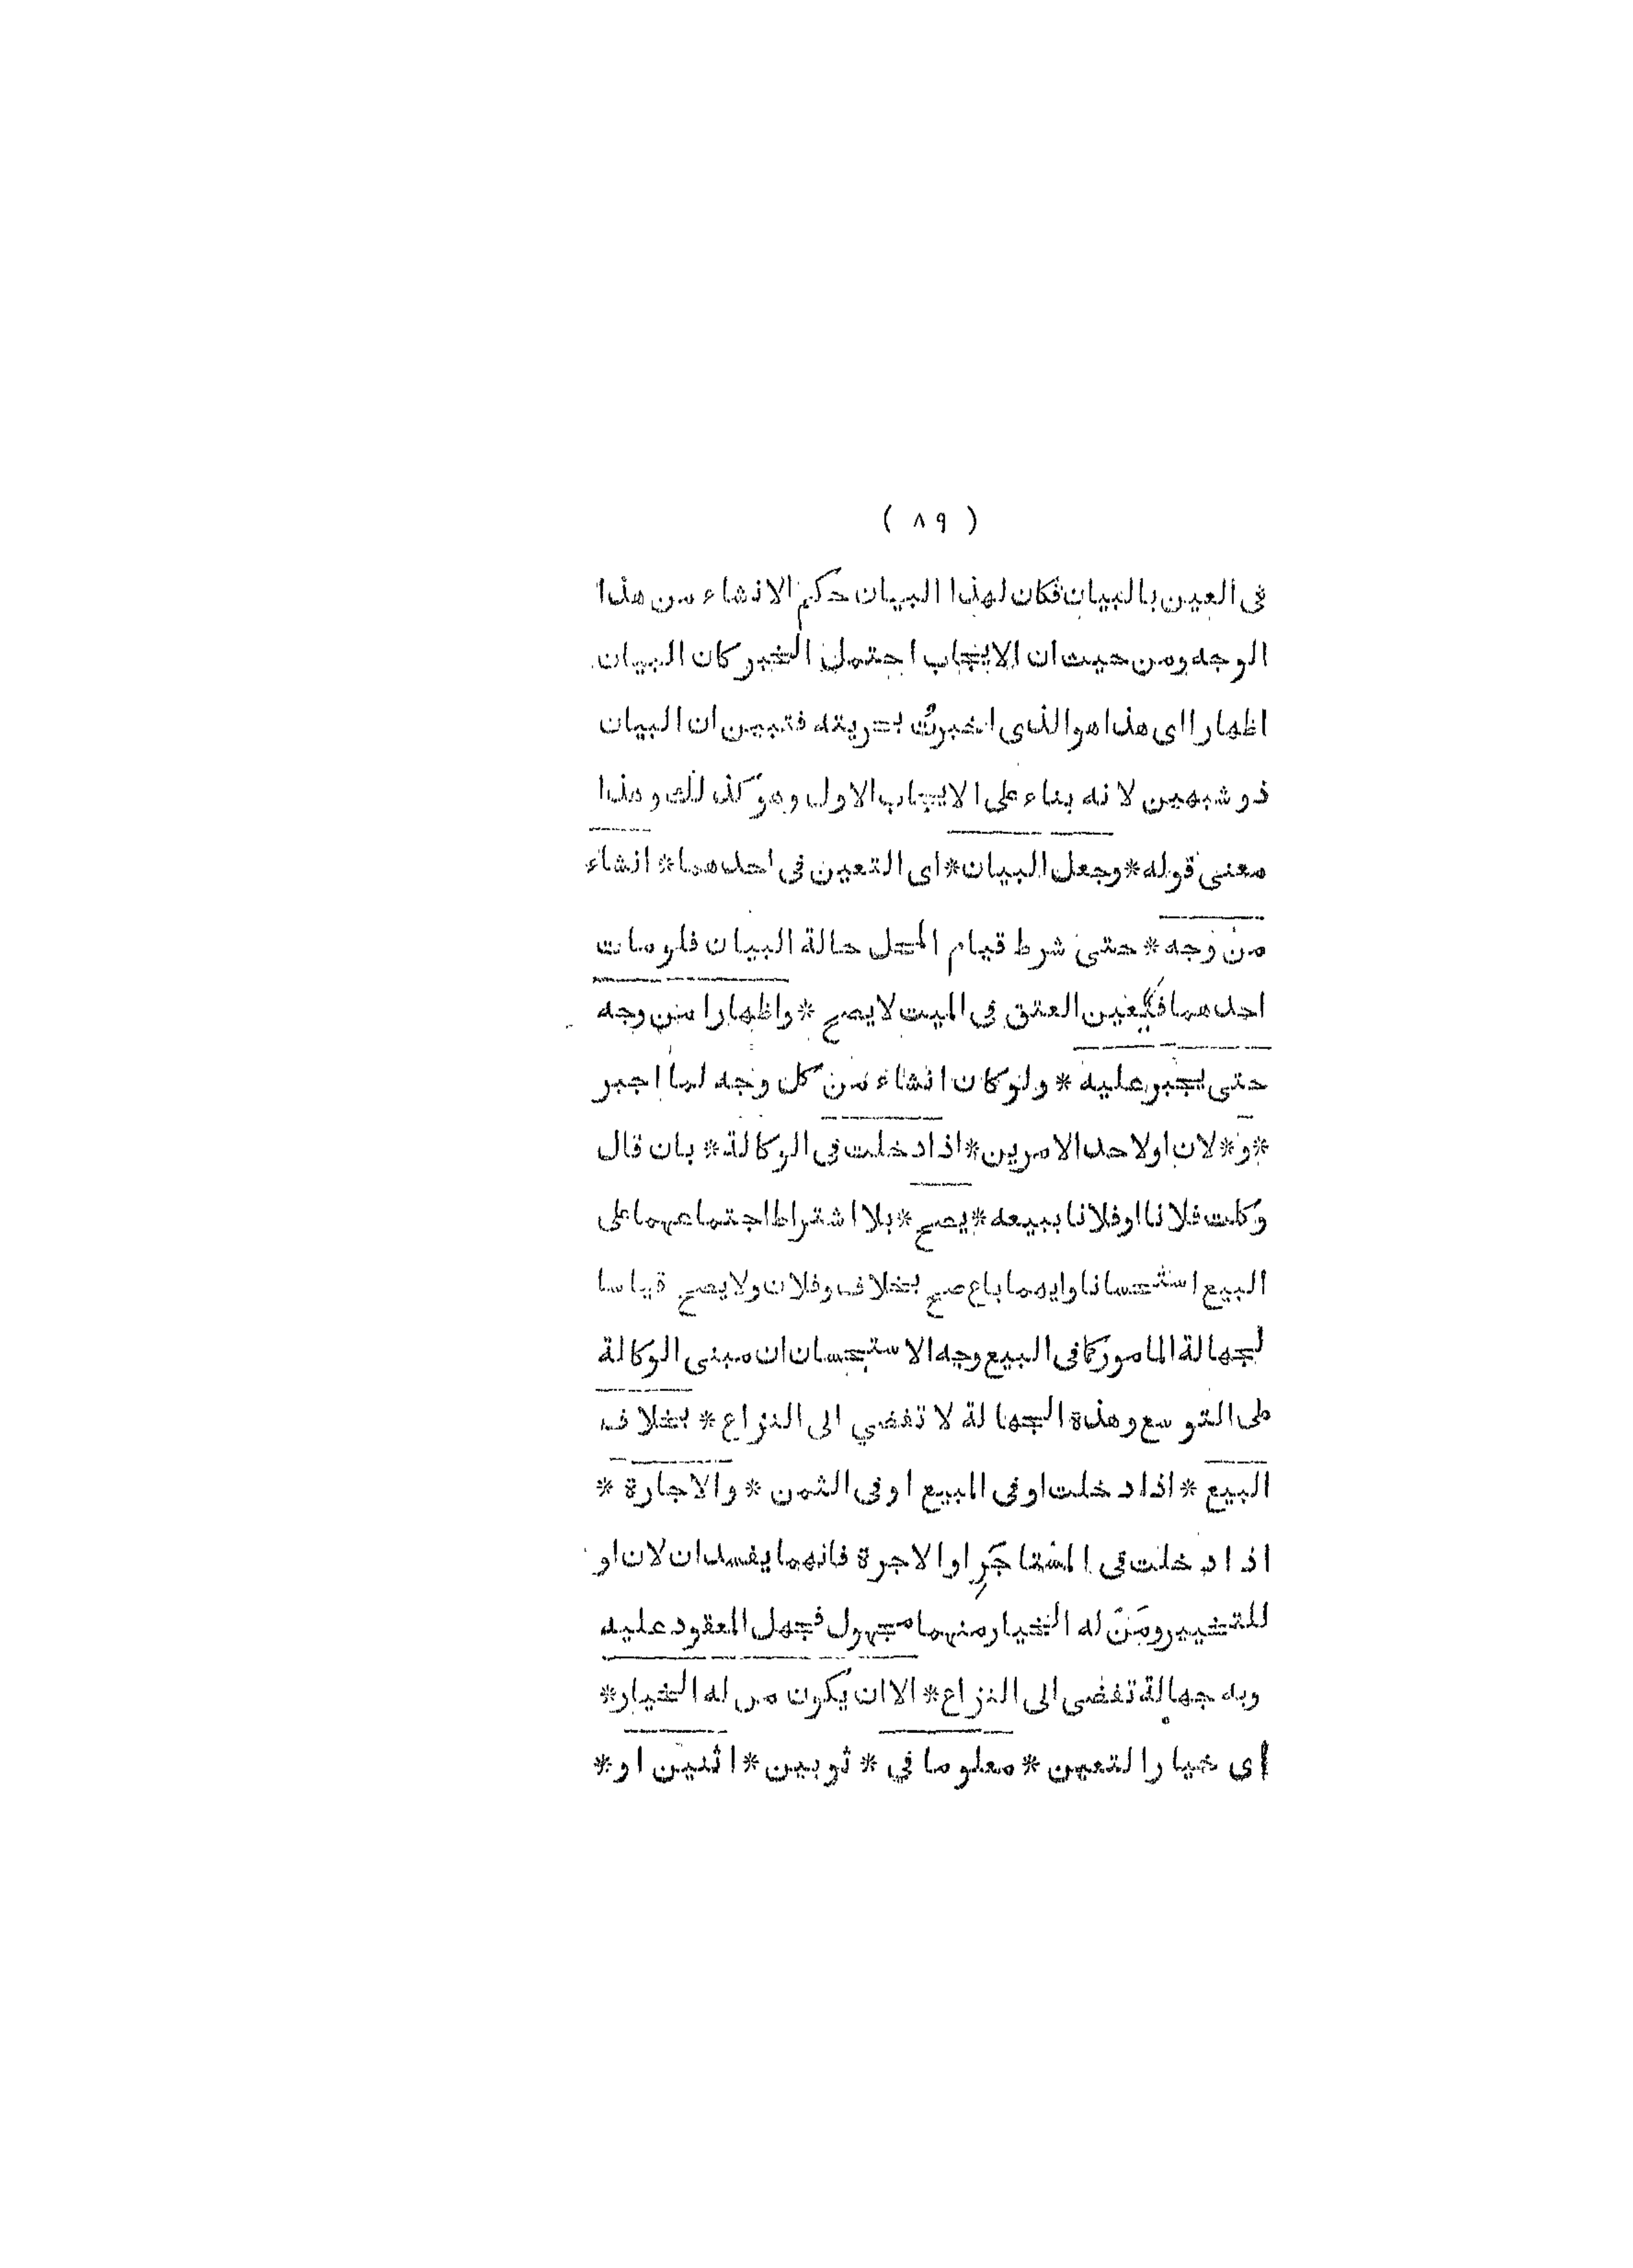 ( ٨٩ )
فى العين بالبيان فكان لهذا البيان حكم الانشاء من هذا
الوجه ومن حيث ان الايجاب احتمل الخبر كان البيان
اظهارا اى هذا هو الذى اخبرت بحريته فتبين ان البيان
ذو شبهين لانه بناء على الايجاب الاول وهو كذلك وهذا
معنى قوله * وجعل البيان * اى التعين فى احدهما * انشاء
من وجه * حتى شرط قيام المحل حالة البيان فلو مات
احدهما فيعين العتق فى الميت لا يصح * واظهارا من وجه
حتى يجبر عليه * ولو كان انشاء من كل وجه لما اجبر
* و * لان او لاحد الامرين * اذا دخلت فى الوكالة * بان قال
وكلت فلانا او فلانا ببيعه * يصح * بلا اشتراط اجتماعهما على
البيع استحسانا وايهما باع صح بخلاف وفلان ولا يصح قياسا
لجهالة المامور كما فى البيع وجه الاستحسان ان مبنى الوكالة
على التوسع وهذة الجهالة لا تفضي الى النزاع * بخلاف
البيع * اذا دخلت او فى المبيع او فى الثمن * والاجارة *
اذا دخلت فى المستاجَرِ او الاجرة فانهما يفسدان لان او
للتخيير ومَنْ له الخيار منهما مجهول فجهل المعقود عليه
وبه جهالة تفضى الى النزاع * الا ان يكون من له الخيار *
اى خيار التعين * معلوما في * ثوبين * اثنين او *